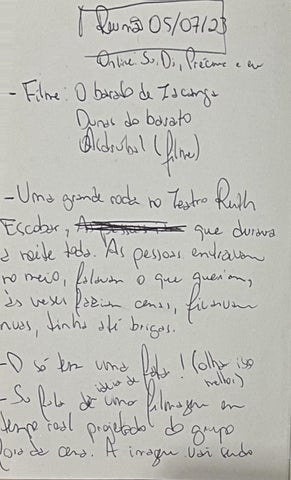 Reunião 05/07/23
Online. Su, Di, e eu
- Filme: O barato de Iacanga
Dunas do barato
(filme)
- Uma grande roda no Teatro Ruth
Escobar, que durava
a noite toda. As pessoas entravam
no meio, falavam o que queriam,
às vezes faziam cenas, ficavam
nuas, tinha até brigas.
- O só tem uma foto! (olhar isso
melhor)
- Su fala ideia de uma filmagem em
tempo real projetada do grupo
fora de cena. A imagem vai sendo